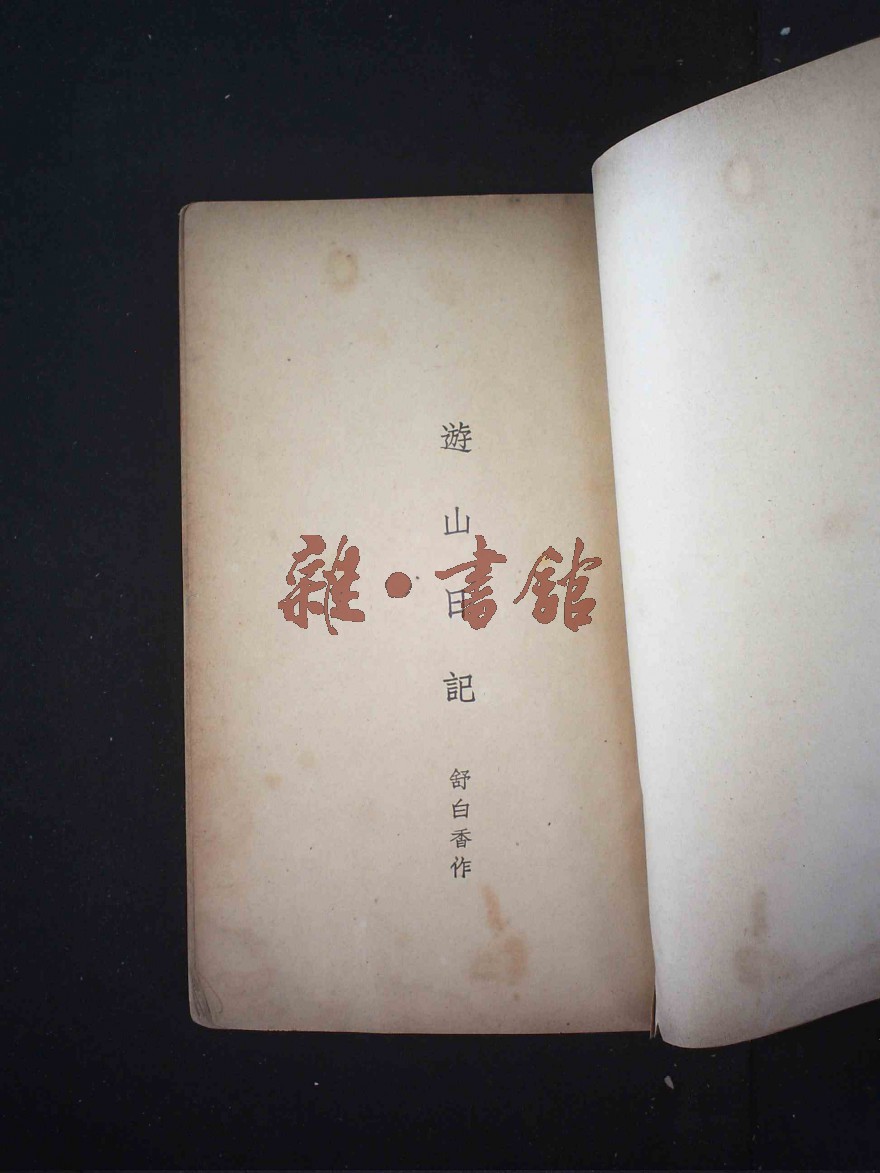 遊山日記
舒白香作
雜·書館